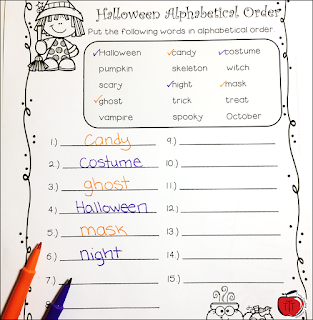 Halloween Alphabetical Order
Put the following words in alphabetical order.
Halloween candy costume
pumpkin skeleton witch
scary night mask
ghost trick treat
vampire spooky October
1) Candy 9)
2) Costume 10)
3) ghost 11)
4) Halloween 12)
5) mask 13)
6) night 14)
7) 15)
8